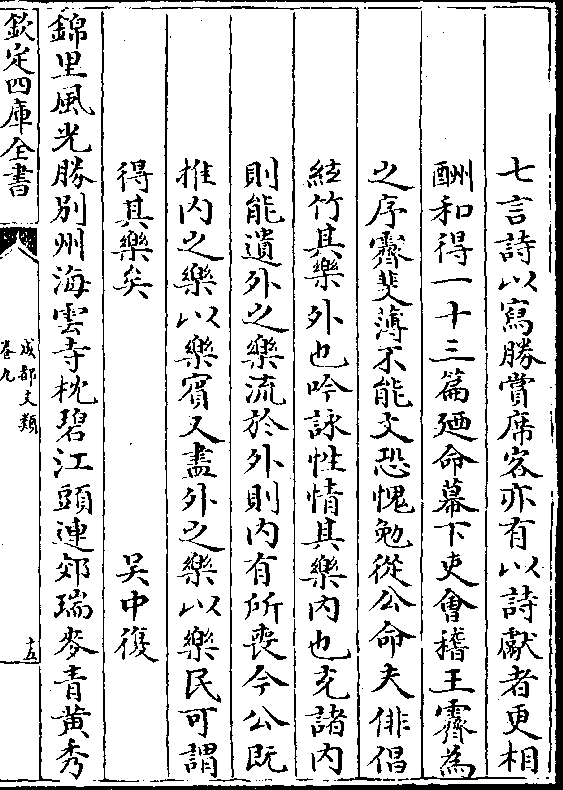 七言詩以寫勝賞席客亦有以詩獻者更相
酬和得一十三篇廼命幕下吏會稽王霽為
之序霽斐薄不能文恐愧勉從公命夫俳倡
絃竹其樂外也吟詠性情其樂内也充諸内
則能遺外之樂流於外則内有所喪今公既
推内之樂以樂賓又盡外之樂以樂民可謂
得其樂矣
吴中復
錦里風光勝别州海雲寺枕碧江頭連郊瑞麥青黄秀
欽定四庫全書
成都文類
卷九
十五